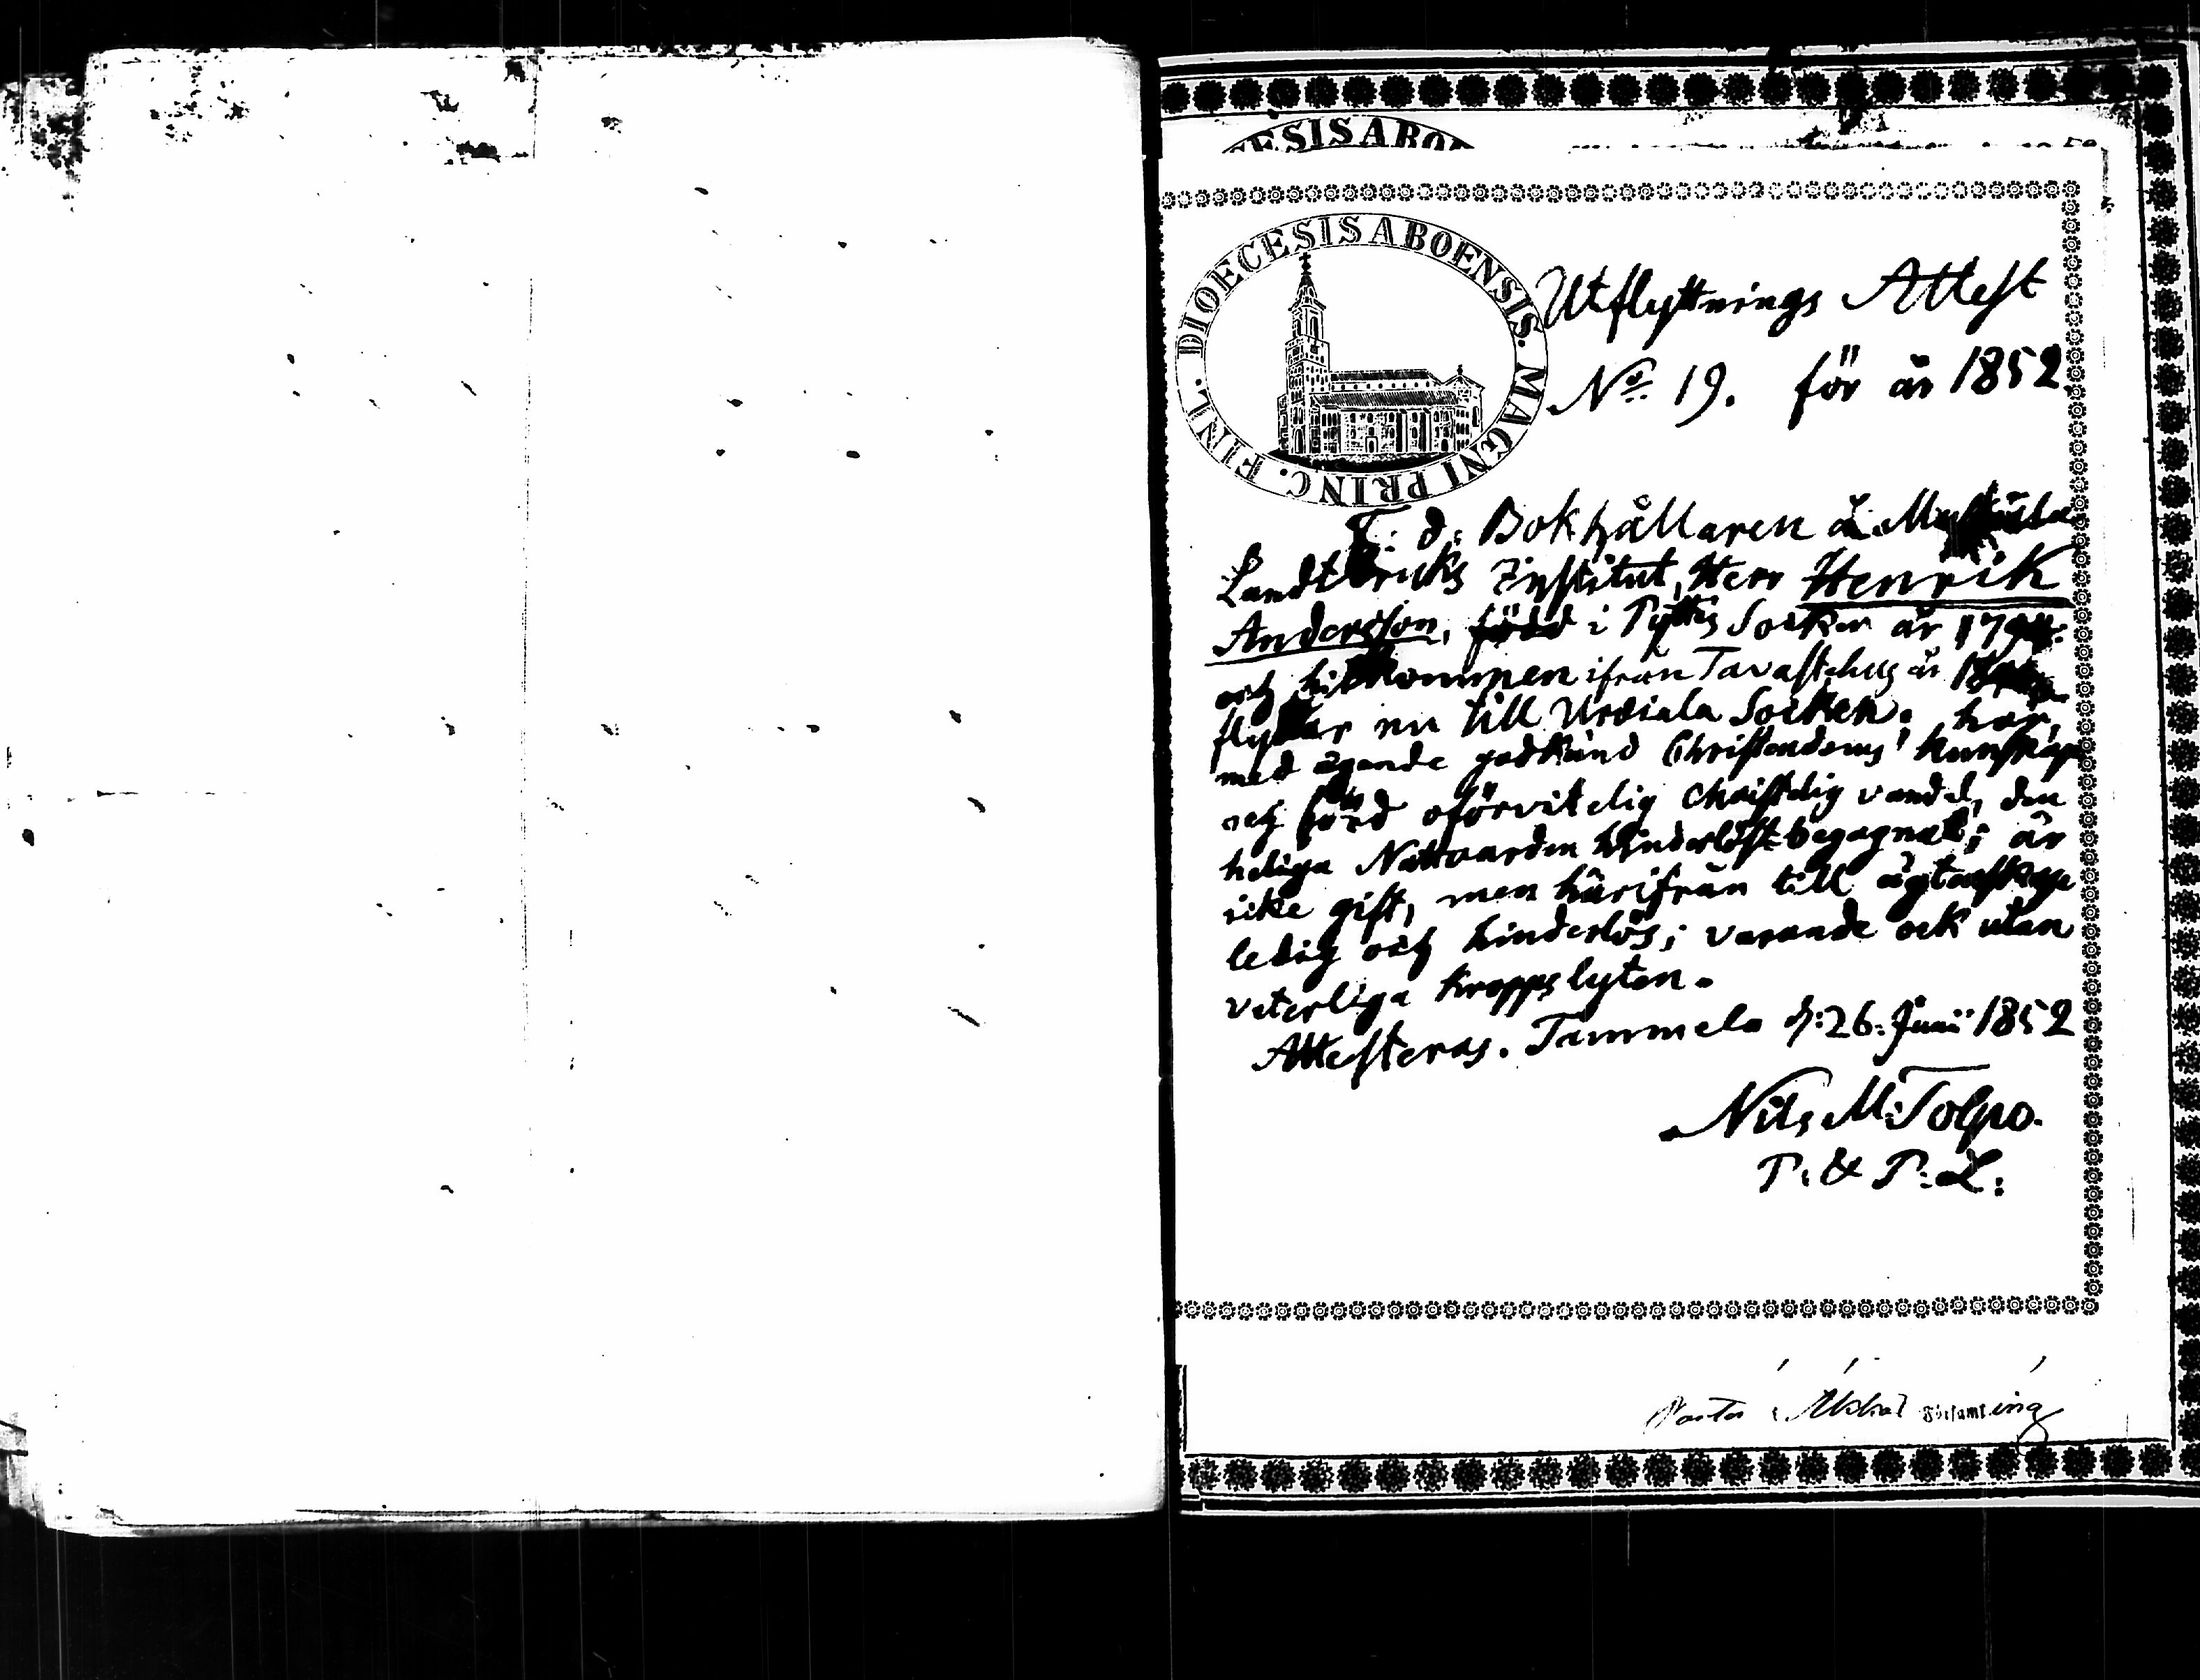 ESIS ABO
DIOECESIS ABOENSIS. MAGNI PRINC. FINL.
Utflyttnings Attest
No. 19. för år 1852.
F: d: Bokhållaren å Mustiala
Landtbruks Institut, Herr Henrik
Andersson, född i Pyttis Socken år
och hitkommen ifrån Tavastehus år
flyttar nu till Urdiala Socken; har,
med ägande godkänd Christendoms kunskap
och förd oförvitelig christelig vandel, den
heliga Nattvarden hinderlöst begagnat; är
icke gift, men härifrån till ägtenskap
ledig och hinderlös; varande ock utan
veterliga kroppslyten.
Attesteras. Tammela d: 26. Junii 1852
Nils M: Tolpo.
P: & P: L: